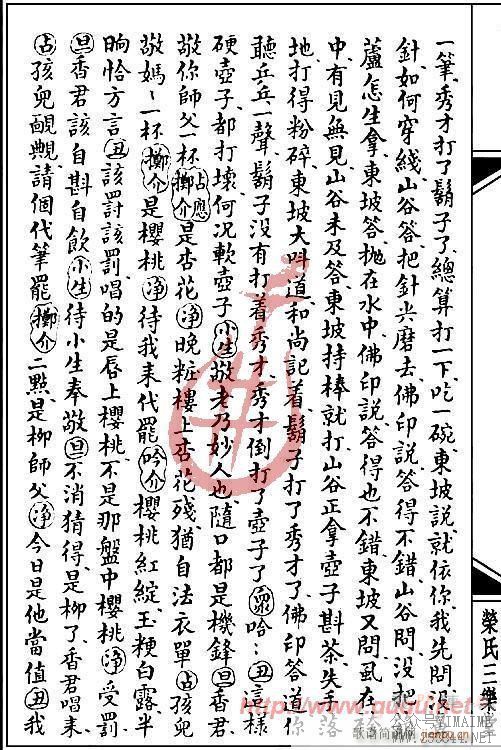 一筆、秀才打了鬍子了、總算打一下、吃一碗、東坡說就依你、我先問、沒
針如何穿綫、山谷答、把針尖磨去、佛印說答得不錯、山谷問、沒把
蘆怎生拿、東坡答、抛在水中、佛印說答得也不錯、東坡又問、虱在
中、有見無見、山谷未及答、東坡持棒就打、山谷正拿壺子斟茶、失手
地、打得粉碎、東坡大叫道、和尚記着、鬍子打了秀才了、佛印答道、你
聽乒乓一聲、鬍子沒有打着秀才、秀才倒打了壺子了、(衆)哈…(丑)這樣
硬壺子都打壞、何况軟壺子、(小生)敬老乃妙人也、隨口都是機鋒、(旦)香君
敬你師父一杯(擲介)(占應)是杏花、(淨)晚粧樓上杏花殘、猶自法衣單、(占)孩兒
敬媽〻一杯(擲介)是櫻桃、(淨)待我来代罷(吟介)櫻桃紅綻、玉粳白露、半
晌恰方言、(丑)該罰該罰、唱的是唇上櫻桃、不是那盤中櫻桃、(淨)受罰
(旦)香君該自斟自飲、(小生)待小生奉敬、(旦)不消猜得、是柳了、香君唱来
(占)孩兒靦覥、請個代筆罷(擲介)二點是柳師父、(淨)今日是他當值、(丑)我
榮氏三樂
歌谱简谱网
www.jianpu.cn